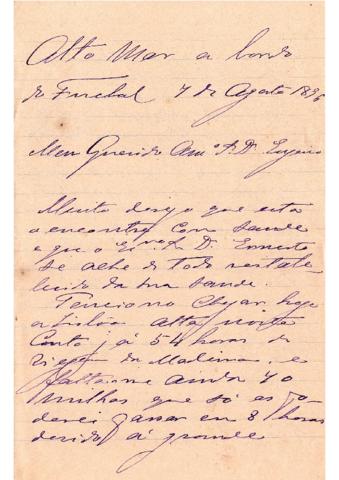 Alto Mar a bordo
do Funchal 7 de Agosto 1896
Meu Querido Amº D. Eugenio
Muito desejo que esta
o encontre com saude
e que o D. Ernesto
se ache de todo restabe
lecido da sua saude.
Tenciono chegar hoje
a Lisboa alta noite
Conto já 54 horas de
viagem da Madeira, e
faltam-me ainda 70
milhas que só as po
derei passar em 8 horas
devido á grande